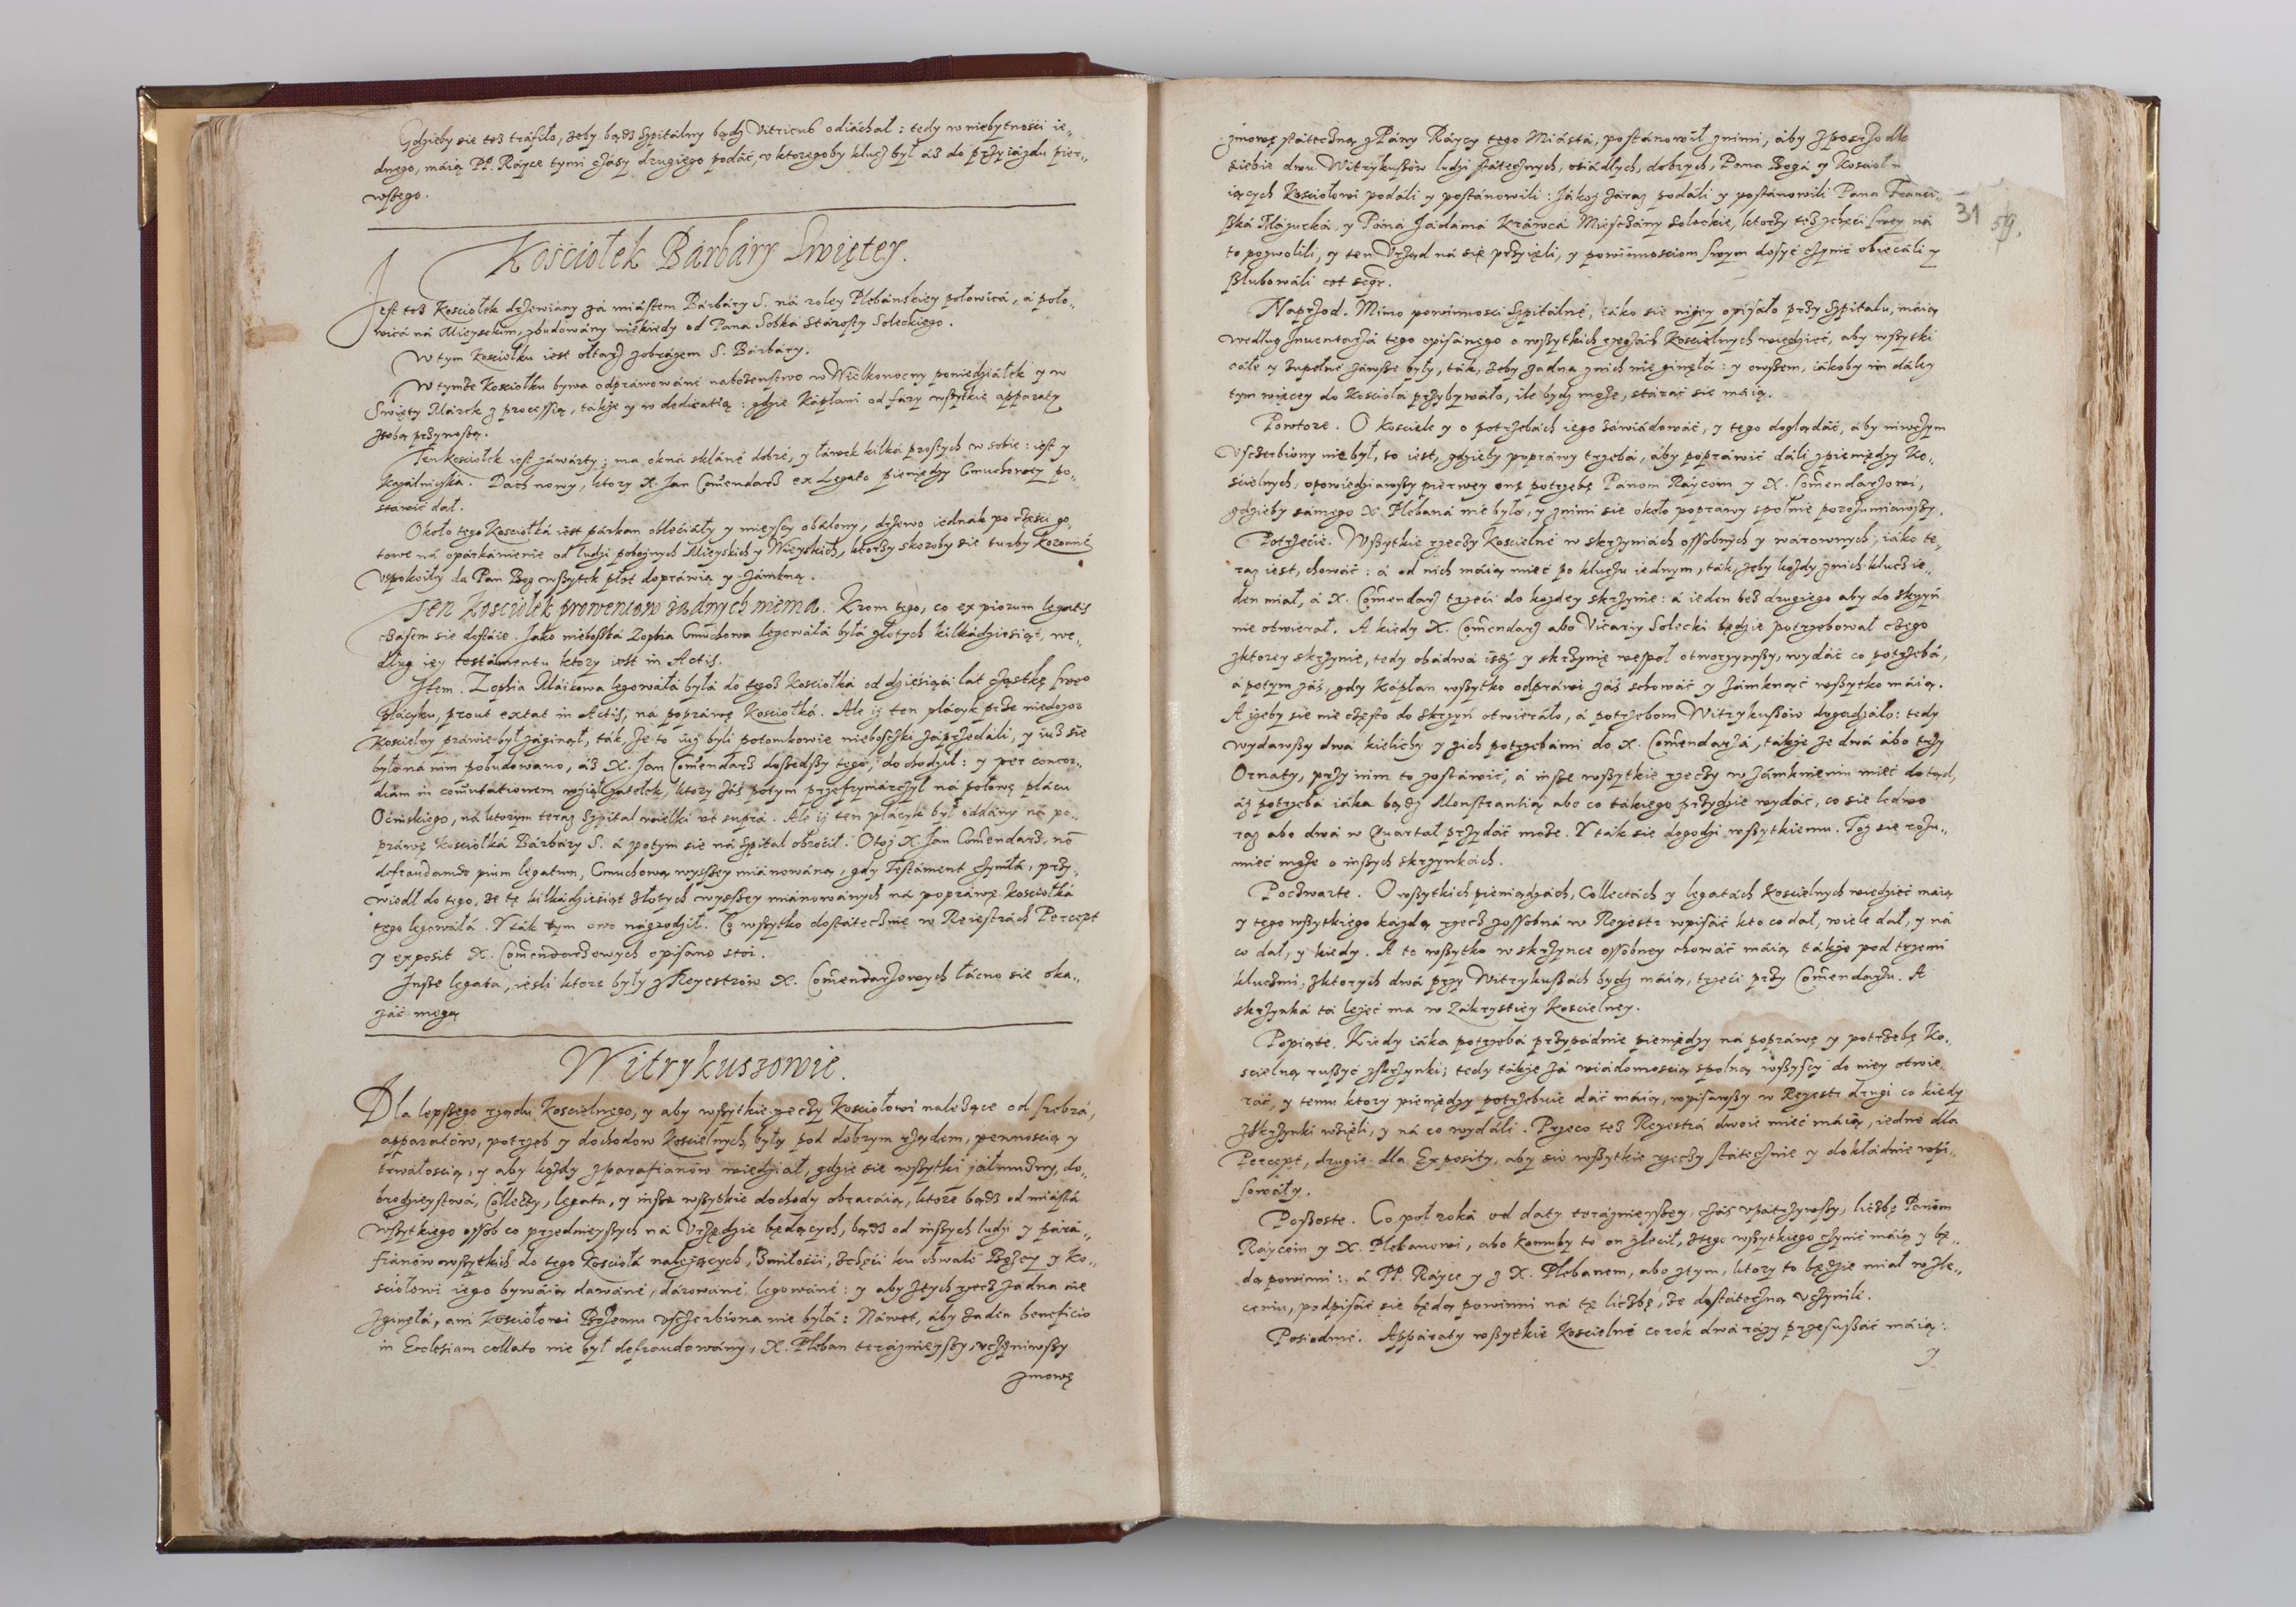 Gdzieby sie też tráfiło, żeby bądź Szpitálny bądź Vitricus odiáchał: tedy w niebytności ie„
dnego, máią PP. Ráyce tymi czásy drugiego podáć, v ktoregoby klucz był áż do przyiázdu pier„
wszego.
Kościołek Bárbáry Swiętey.
Jest też Kościołek drzewiány zá miástem Bárbáry S. ná roley Plebánskiey połowicá, á poło„
wicá ná Mieyskim, zbudowány niékiedy od Pana Sobká Stárosty Soleckiego.
W tym Kosciołku iest ołtarz zobrázem S. Bárbáry.
W tymże Kosciołku bywa odpráwowáné nabożenstwo w Wielkonocny poniedziáłek y w
Swięty Márek z processią, tákże y w dedicatią: gdzie Kápłani od fáry wszytkie appáraty
zsobą przynoszą.
Ten Kosciołek iest záwárty; ma okná skláné dobré, y łáwek kilká prostych w sobie: iest y
Kazálniczká. Dach nowy, ktory X. Jan Comẽndarz ex Legato pieniędzy Gmuchowey po„
stáwić dał.
Około tego Kosciołká iest párkan obleciáły y mieyscy obálony, drzewo iednák po częsci go„
towe ná opárkánienie od ludzi pobożnych Mieyskich y Wieyskich, ktorzy skoroby sie turby Koronné
vspokoiły da Pan Bog wszytek płot dopráwią y zámkną.
Ten Kosciołek prowentow żadnych niema. Krom tego, co ex piorum legatis
czásem sie dostáie. Jáko nieboszká Zophia Gmuchowa legowáłá byłá złotych kilkádziesiąt, we„
dług iéy testámentu ktory iest in Actis.
Item. Zophia Máikowa legowáłá byłá do tegoż Kosciołká od dziesiąći lat cząstkę swégo
plácyku, prout extat in Actis, ná popráwę Kosciołká. Ale iż ten plácyk prze niedozor
Koscielny práwie był záginął, ták, że to iuż byli potomkowie nieboszczki záprzedáli, y iuż sie
było ná nim pobudowano, áż X. Jan Comẽndarz doszedszy tego, dochodził: y per concor„
diam in comutationem wziął zatełek, ktory záś potym przefrymárczył ná połowę plácu
Ocinskiego, ná ktorym teraz Szpital wielki vt supra. Ale iż ten plácyk był oddány ná po„
práwę Kosciołká Bárbáry S. á potym sie ná Szpital obrocił. Otoż X. Jan Comẽndarz, nõ
defraudando pium legatum, Gmuchową wyszszey miánowáną, gdy Testáment czyniłá, przy„
wiodł do tego, że tę kilkádziesiąt złotych wyszszey miánowánych ná popráwę Kosciołká
tego legowáłá. Y ták tym owo nágrodził. Co wszytko dostátecznie w Reiestrách Percept
y exposit X. Comẽndarzowych opisano stoi.
Insze legata, iesli ktore były z Reyestrow X. Comẽndarzowych łácno sie oka„
záć mogą
Witrykuszowie.
Dla lepszego rządu Koscielnego, y aby wszytkie rzeczy Kosciołowi należące od srebrá,
apparatów, potrzeb y dochodow Koscielnych, były pod dobrym rządem, pewnoscią y
trwáłoscią, y aby kożdy zparafianów wiedział, gdzie sie wszytki jáłmużny, do„
brodzieystwá, Collecty, legata, y insze wszytkie dochody obracáią, ktoré bądź od miástá
wszytkiego ossob co przednieyszych ná Vrzędzie będących, bądź od inszych ludzi y pára„
fianow wszytkich do tego Kosciołá należących, zmiłości, zchęci ku chwale Bożey y Ko„
ściołowi iego bywáią dawáné, dárowáné, legowáné: y aby ztych rzecz żadna nie
zginęłá, ani Kosciołowi Bożemu vszczerbiona nie byłá: Náwet, áby żaden beneficio
in Ecclesiam collato nie był defraudowány, X. Pleban teráznieyszy, vczyniwszy
zmowę
31 59.
zmowę státeczną z Pány Ráycy tego Miástá, postánowił znimi, áby zposrzodk
siebie dwu Witrykuszow ludzi státecznych, osiádłych, dobrych, Pana Bogá y Koscioł
iących Kosciołowi podáli y postánowili: Jákoż záraz podáli y postánowili Pana Franci„
szká Głázucká, y Páná Jádámá Kráwcá Miesczány Soleckie, ktorzy też zchęci swey ná
to pozwolili, y ten Vrząd ná się przyięli, y powinnościom swym dosyć czynić obiecáli y
szlubowáli cet seqr.
Naprzod. Mimo powinnosci Szpitálné, iáko sie niżey opisáło przy Szpitalu, máią
według Inuentarzá tego opisánego o wszytkich rzeczách Koscielnych wiedzieć, aby wszytki
cáłe y zupełné záwsze były, ták, żeby żadna znich nie ginęłá: y owszem, iákoby im dáley
tym więcey do Kosciołá przybywáło, ile bydź może, stáráć sie máią.
Powtore. O Kosciele y o potrzebách iego záwiádowáć, y tego doglądáć, áby niwczym
vszczerbiony nie był, to iest, gdzieby popráwy trzebá, áby popráwić dáli zpieniędzy Ko„
scielnych, opowiedziawszy pierwey onę potrzebę Pánom Ráycom y X. Comẽndarzowi,
gdzieby sámego X. Plebaná nie było, y znimi sie około popráwy społnie porozumiawszy.
Potrzecie. Wszytkie rzeczy Koscielné w skrzyniách ossobnych y wárownych, iáko te„
raz iest, chowáć: á od nich máią mieć po kluczu iednym, ták, żeby kożdy znich klucz ie„
den miał, á X. Comẽndarz trzeci do kożdey skrzynie: á ieden bez drugiego aby do skrzyń
nie otwierał. A kiedy X. Comẽndarz abo Vicariy Solecki będzie potrzebował czego
zktorey skrzynie, tedy obádwá iść y skrzynię wespoł otworzywszy, wydáć co potrzebá,
á potym záś, gdy Kápłan wszytko odpráwi záś schowáć y zámknąć wszytko máią.
A żeby sie nie często do skrzyń otwieráło, á potrzebom Witrykuszów dogadzáło: tedy
wydawszy dwá kielichy y zich potrzebámi do X. Comẽndarzá, tákże ze dwá ábo trzy
Ornaty, przy nim to zostáwić, á insze wszytkie rzeczy w zámknieniu mieć dotąd,
áż potrzebá iáka bądź Monstrantią abo co tákiego przydzie wydáć, co sie ledwo
raz abo dwá w Quartał przydáć może. Y ták sie dogodzi wszytkiemu. Toż się rozu„
mieć może o inszych skrzynkách.
Poczwarte. O wszytkich pieniądzách, Collectách y legatách Koscielnych wiedzieć máią
y tego wszytkiego każdą rzecz zossobná w Regestr wpisáć kto co dał, wiele dał, y ná
co dał, y kiedy. A to wszytko w skrzynce ossobney chowáć máią tákże pod trzemi
kluczmi, zktorych dwá przy Witrykuszách bydź máią, trzeci przy Comẽndarzu. A
skrzynká tá leżeć ma w Zákrystiey Koscielney.
Popiąte. Kiedy iáka potrzebá przypádnie pieniędzy ná popráwę y potrzebę Ko„
scielną ruszyć zskrzynki; tedy tákże zá wiádomoscią spolną wszyscy do niey otwie„
ráć, y temu ktory pieniędzy potrzebuie dáć máią, wpisawszy w Regestr drugi co kiedy
zskrzynki wzięli, y ná co wydáli. Przeco też Regestrá dwoie mieć máią, iedne dla
Percept, drugie dla Exposity, aby sie wszytkie rzeczy státecznie y dokłádnie wpi„
sowáły.
Poszoste. Co poł roká od daty teráznieyszey, czás vpátrzywszy, liczbę Pánom
Ráycom y X. Plebanowi, abo komuby to on zlecił, ztego wszytkiego czynić máią y bę„
dą powinni: á PP. Ráyce y z X. Plebanem, abo ztym, ktory to będzie miał w zle„
ceniu, podpisáć sie będą powinni ná tę liczbę, że dostáteczną vczynili.
Posiodme. Appáraty wszytkie Koscielné co rok dwá rázy przesuszáć máią:
y